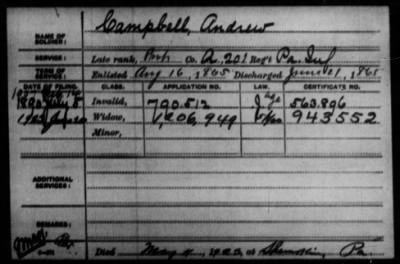 NAME OF SOLDIER: Campbell, Andrew
SERVICE: Late rank, Co. A, 201 Reg't Pa. Inf
TERM OF SERVICE: Enlisted Aug 16, 1865 Discharged June 21, 1865
DATE OF FILING. CLASS. APPLICATION NO. LAW. CERTIFICATE NO.
1890 July 8 Invalid, 790.512 563.896
Widow, 1,206,949 943552
Minor,
ADDITIONAL SERVICES:
REMARKS:
Died May 4, at Shamokin, Pa.